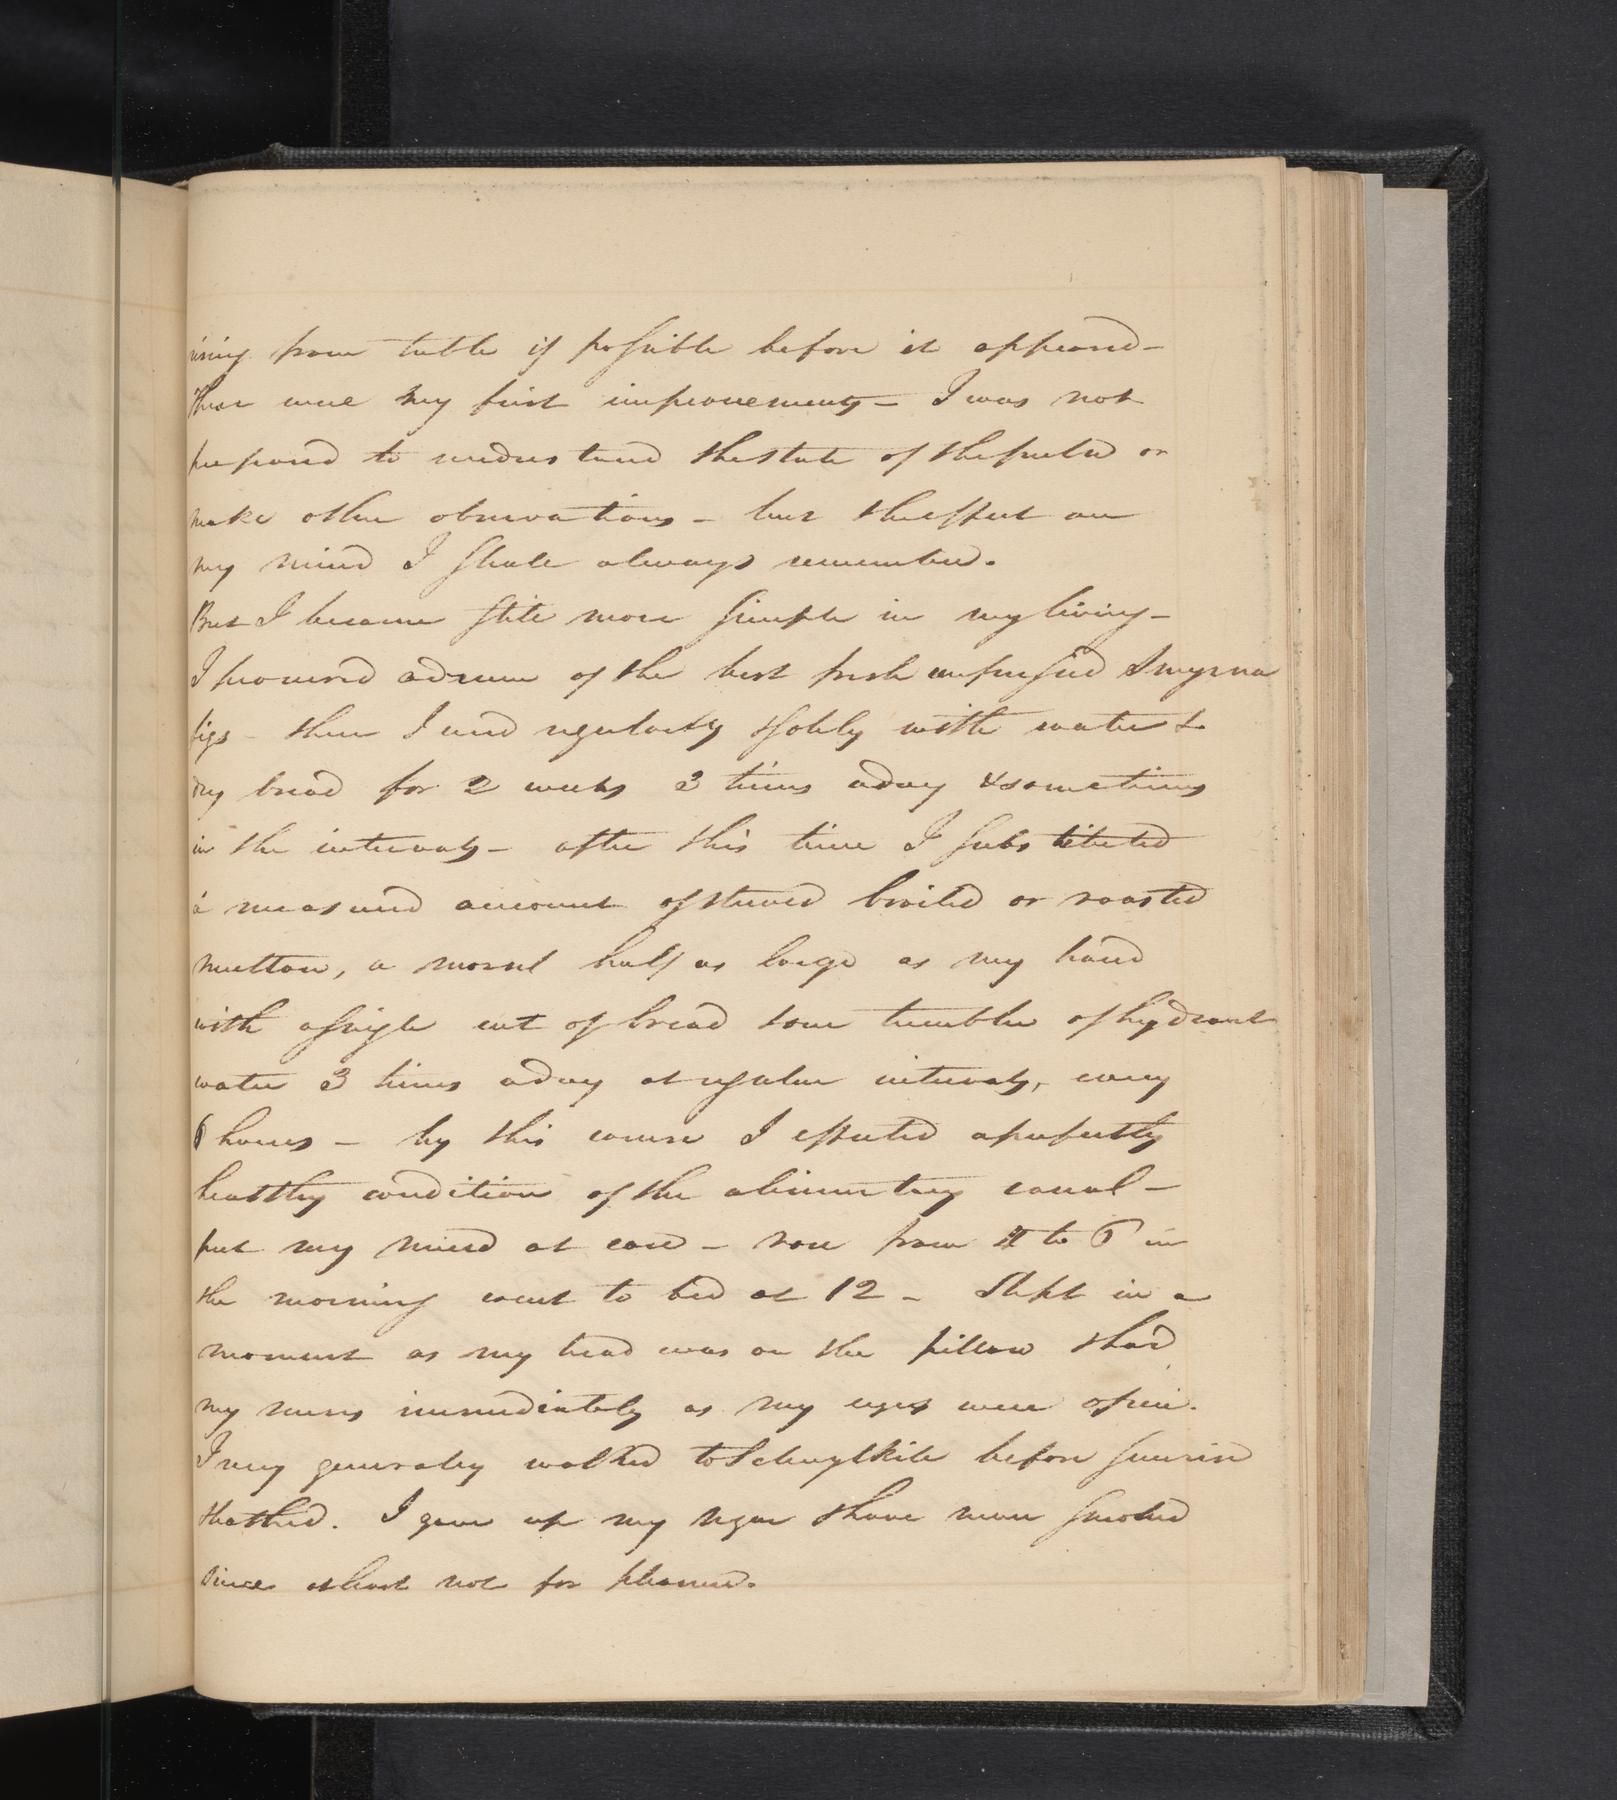 rising from table if possible before it appeared -
These were my first improvements - I was not
prepared to understand the state of the pulse or
make other observations - but the effect on
my mind I shall always remember.
But I became still more simple in my living -
I procured a drum of the best fresh unpressed Smyrna
figs - these I used regularly & solely with water &
dry bread for 2 weeks 3 times a day & sometimes
in the intervals - after this time I substituted
a measured amount of stewed broiled or roasted
mutton, a morsel half as large as my hand
with a single cut of bread & one tumbler of hydrant
water 3 times a day at regular intervals, every
6 hours - by this course I effected a perfectly
healthy condition of the alimentary canal -
put my mind at ease - rose from 4 to 6 in
the morning went to bed at 12 - Slept in a
moment as my head was on the pillow & had
my senses immediately as my eyes were open.
I very generally walked to Schuylkill before sunrise
& bathed. I gave up my segar & have never smoked
since at least not for pleasure.